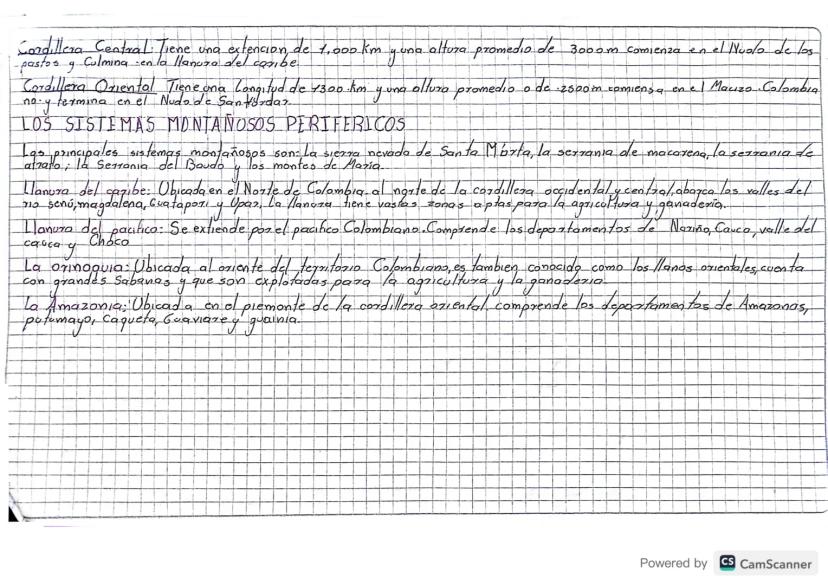 Cordillera Central: Tiene una extencion de 1,000 km y una altura promedio de 3000m comienza en el Nudo de los
pastos y Culmina en la llanura del caribe.
Cordillera Oriental Tiene una Longitud de 1300 km y una altura promedio o de 2500m comiensa en el Macizo Colombia
no y termina en el Nudo de Santurdar
LOS SISTEMAS MONTAÑOSOS PERIFERICOS
Los principales sistemas montañosos son: la sierra nevada de Santa Marta, la serrania de macarena, la serrania de
atrato, la Serrania del Baudo y los montes de Maria.
Llanura del caribe: Ubicada en el Norte de Colombia. al norte de la cordillera occidental y central, abarca los valles del
rio senú, magdalena, Guatapori y Upar, La llanura tiene vastas zonas aptas para la agricultura y ganaderia.
Llanura del pacifico: Se extiende por el pacifico Colombiano. Comprende los departamentos de Nariño, Cauca, valle del
cauca y Choco
La orinoquia: Ubicada al oriente del territorio Colombiano, es tambien conocido como los llanos orientales, cuenta
con grandes Sabanas y que son explotadas para la agricultura y la ganaderia.
La Amazonia: Ubicada en el piemonte de la cordillera oriental. comprende los departamentos de Amazonas,
putumayo, Caqueta, Guaviare y guainia.
Powered by CS CamScanner